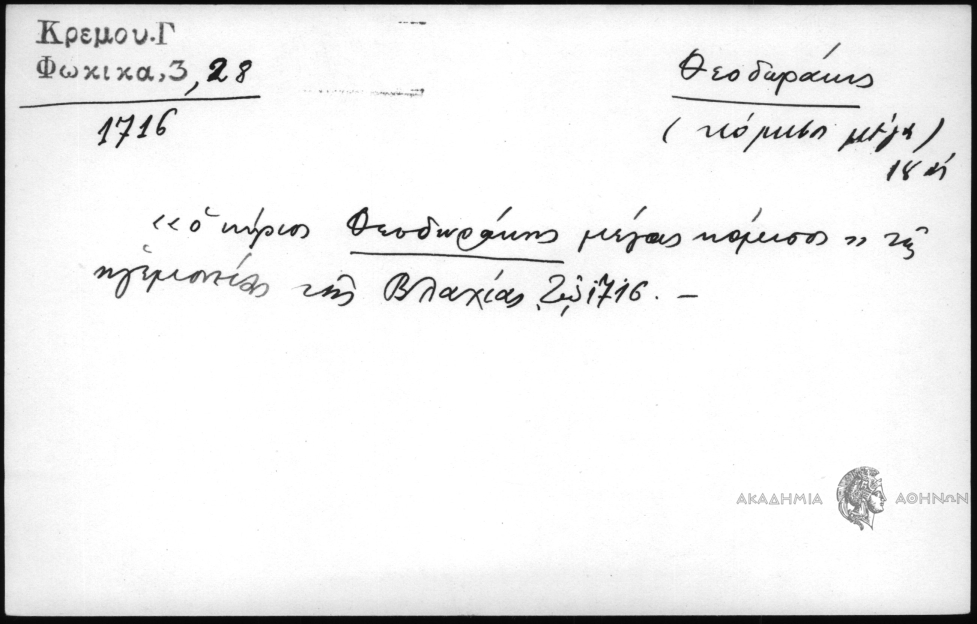 Κρεμου.Γ
Φωκικα,3,28
1716
Θεοδωράκης
(κόμισος μέγας)
18 
«ὁ κύριος Θεοδωράκης μέγας κόμισος» τῆς
ἡγεμονίας τῆς Βλαχίας 1716. –
ΑΚΑΔΗΜΙΑ ΑΘΗΝΩΝ